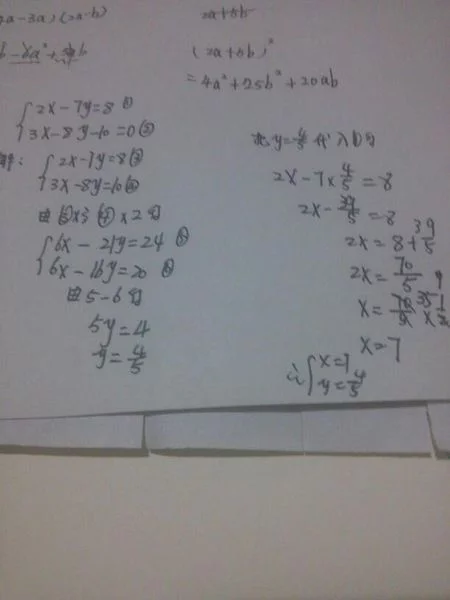 a-3a)(2a-b)
2a+5b
(2a+5b)²
=4a²+25b²+20ab
{2x-7y=8①
3x-8y-10=0②
解:{2x-7y=8③
3x-8y=10④
由③×3 ④×2得
{6x-21y=24⑤
6x-16y=20⑥
由5-6得
5y=4
y=4/5
把y=4/5代入①得
2x-7×4/5=8
=8
2x=8+39/5
2x=70/5
x=
x=7
∴{x=7
y=4/5